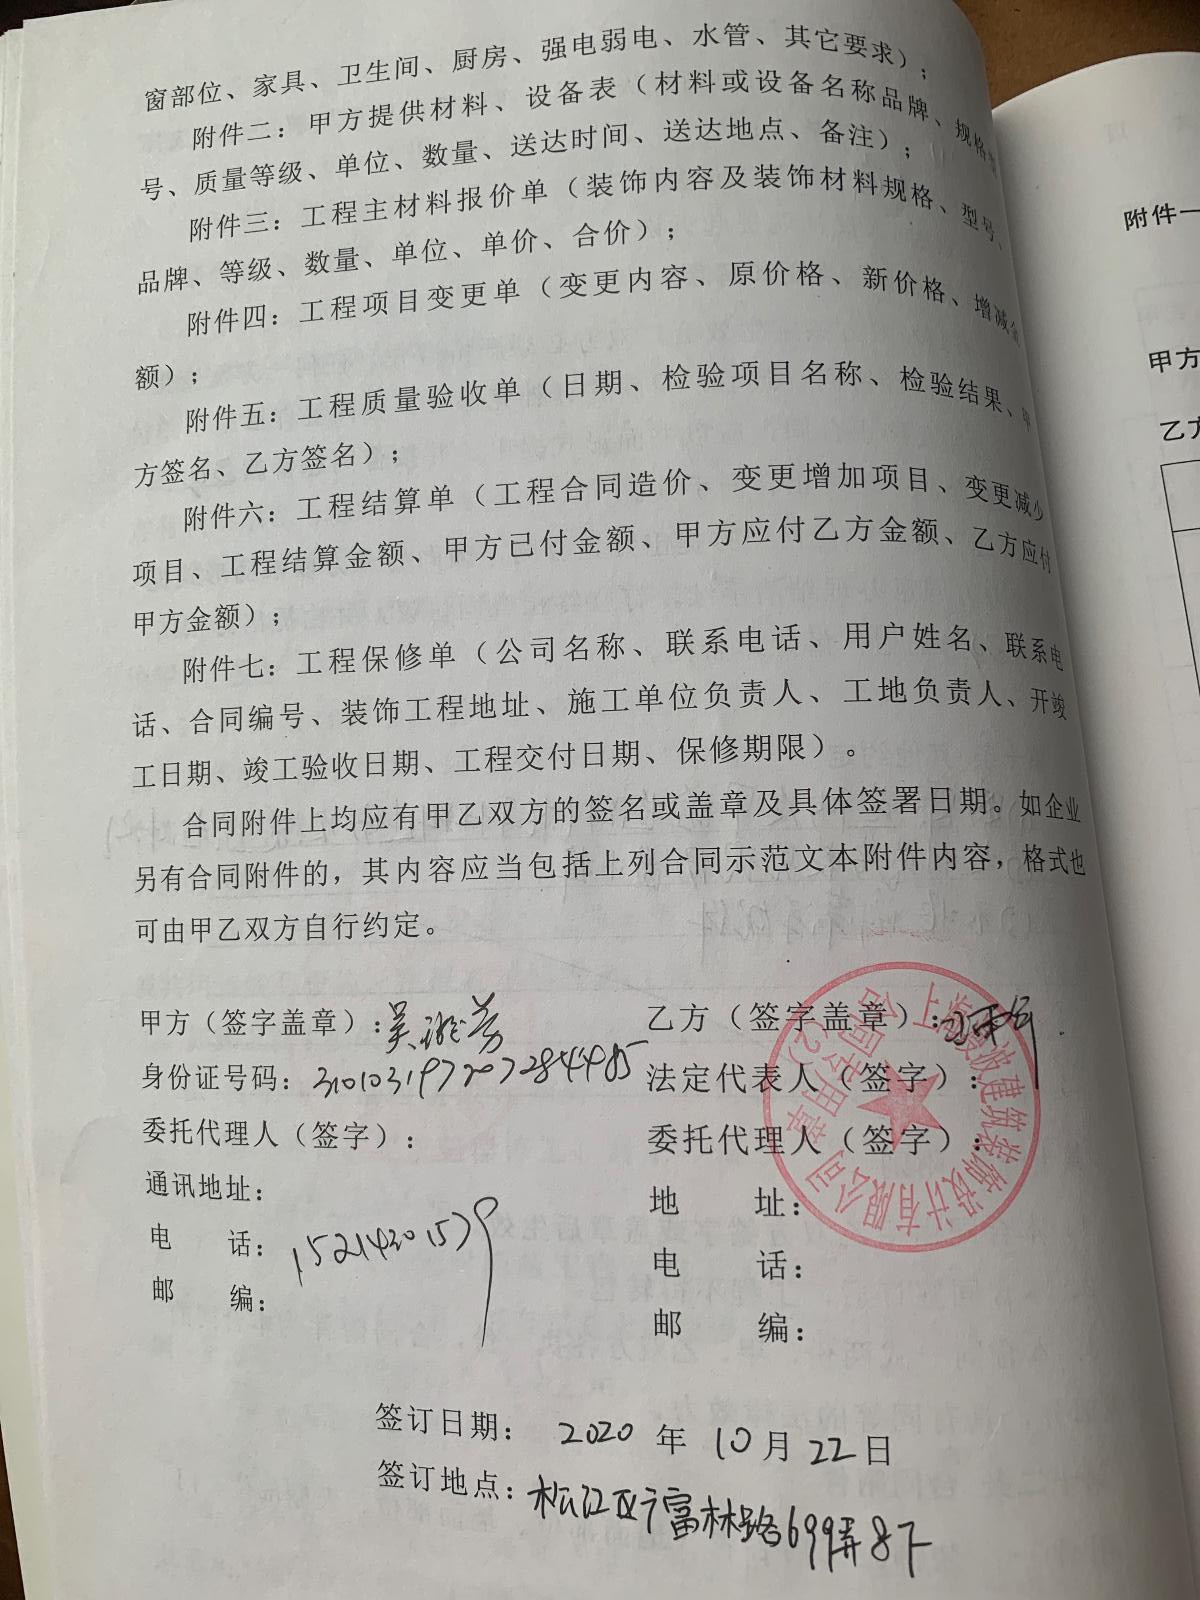 窗部位、家具、卫生间、厨房、强电弱电、水管、其它要求）；
附件二：甲方提供材料、设备表（材料或设备名称品牌、规格型
号、质量等级、单位、数量、送达时间、送达地点、备注）；
附件三：工程主材料报价单（装饰内容及装饰材料规格、型号、
品牌、等级、数量、单位、单价、合价）；
附件四：工程项目变更单（变更内容、原价格、新价格、增减金
额）；
附件五：工程质量验收单（日期、检验项目名称、检验结果、甲
方签名、乙方签名）；
附件六：工程结算单（工程合同造价、变更增加项目、变更减少
项目、工程结算金额、甲方已付金额、甲方应付乙方金额、乙方应付
甲方金额）；
附件七：工程保修单（公司名称、联系电话、用户姓名、联系电
话、合同编号、装饰工程地址、施工单位负责人、工地负责人、开竣
工日期、竣工验收日期、工程交付日期、保修期限）。
合同附件上均应有甲乙双方的签名或盖章及具体签署日期。如企业
另有合同附件的，其内容应当包括上列合同示范文本附件内容，格式也
可由甲乙双方自行约定。
甲方（签字盖章）：吴
身份证号码：310103197207284485
委托代理人（签字）：
通讯地址：
电 话：15214301579
邮 编：
乙方（签字盖章）：
法定代表人（签字）：
委托代理人（签字）：
地 址：
电 话：
邮 编：
上海 波建筑装饰设计有限公司
合同专用章
(2)
签订日期： 2020 年 10 月 22 日
签订地点：松江区广富林路699弄8下
附件一
甲方
乙方